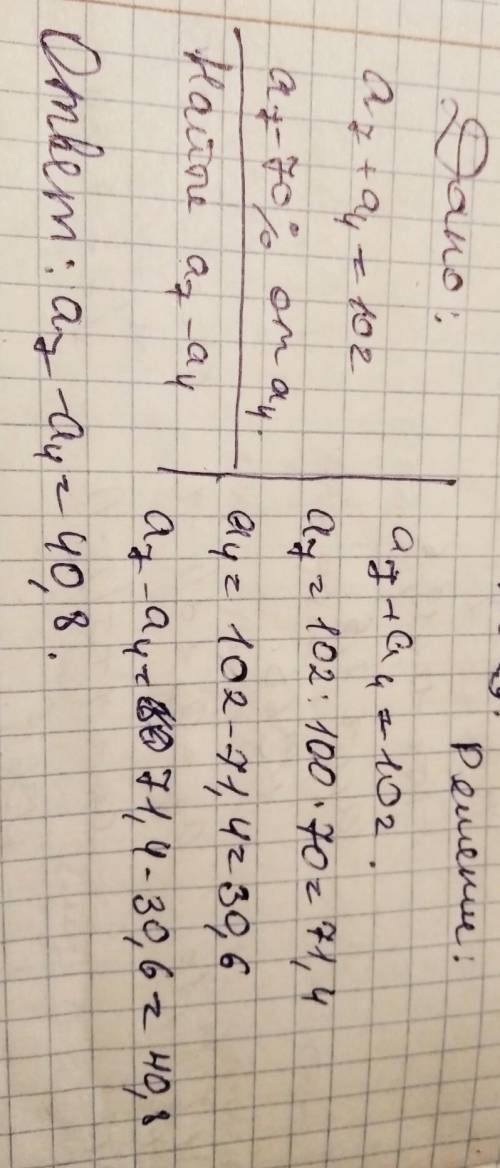 Дано:
a₇ + a₄ = 102
a₇ - 70% от a₄.
Найти a₇ - a₄
Решение:
a₇ + a₄ = 102.
a₇ = 102 : 100 · 70 = 71,4
a₄ = 102 - 71,4 = 30,6
a₇ - a₄ = 71,4 - 30,6 = 40,8
Ответ: a₇ - a₄ = 40,8.